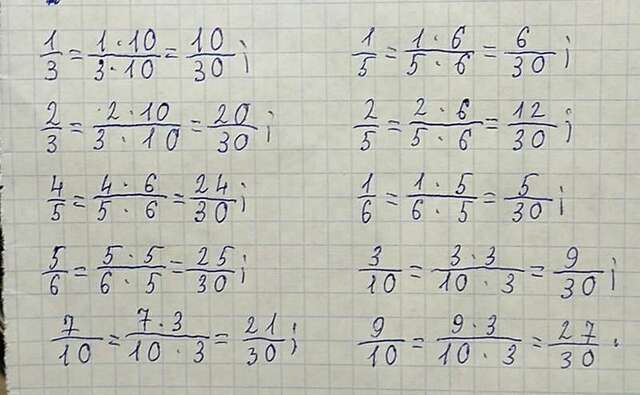 1/3 = 1·10/3·10 = 10/30; 1/5 = 1·6/5·6 = 6/30;
2/3 = 2·10/3·10 = 20/30; 2/5 = 2·6/5·6 = 12/30;
4/5 = 4·6/5·6 = 24/30; 1/6 = 1·5/6·5 = 5/30;
5/6 = 5·5/6·5 = 25/30; 3/10 = 3·3/10·3 = 9/30;
7/10 = 7·3/10·3 = 21/30; 9/10 = 9·3/10·3 = 27/30.